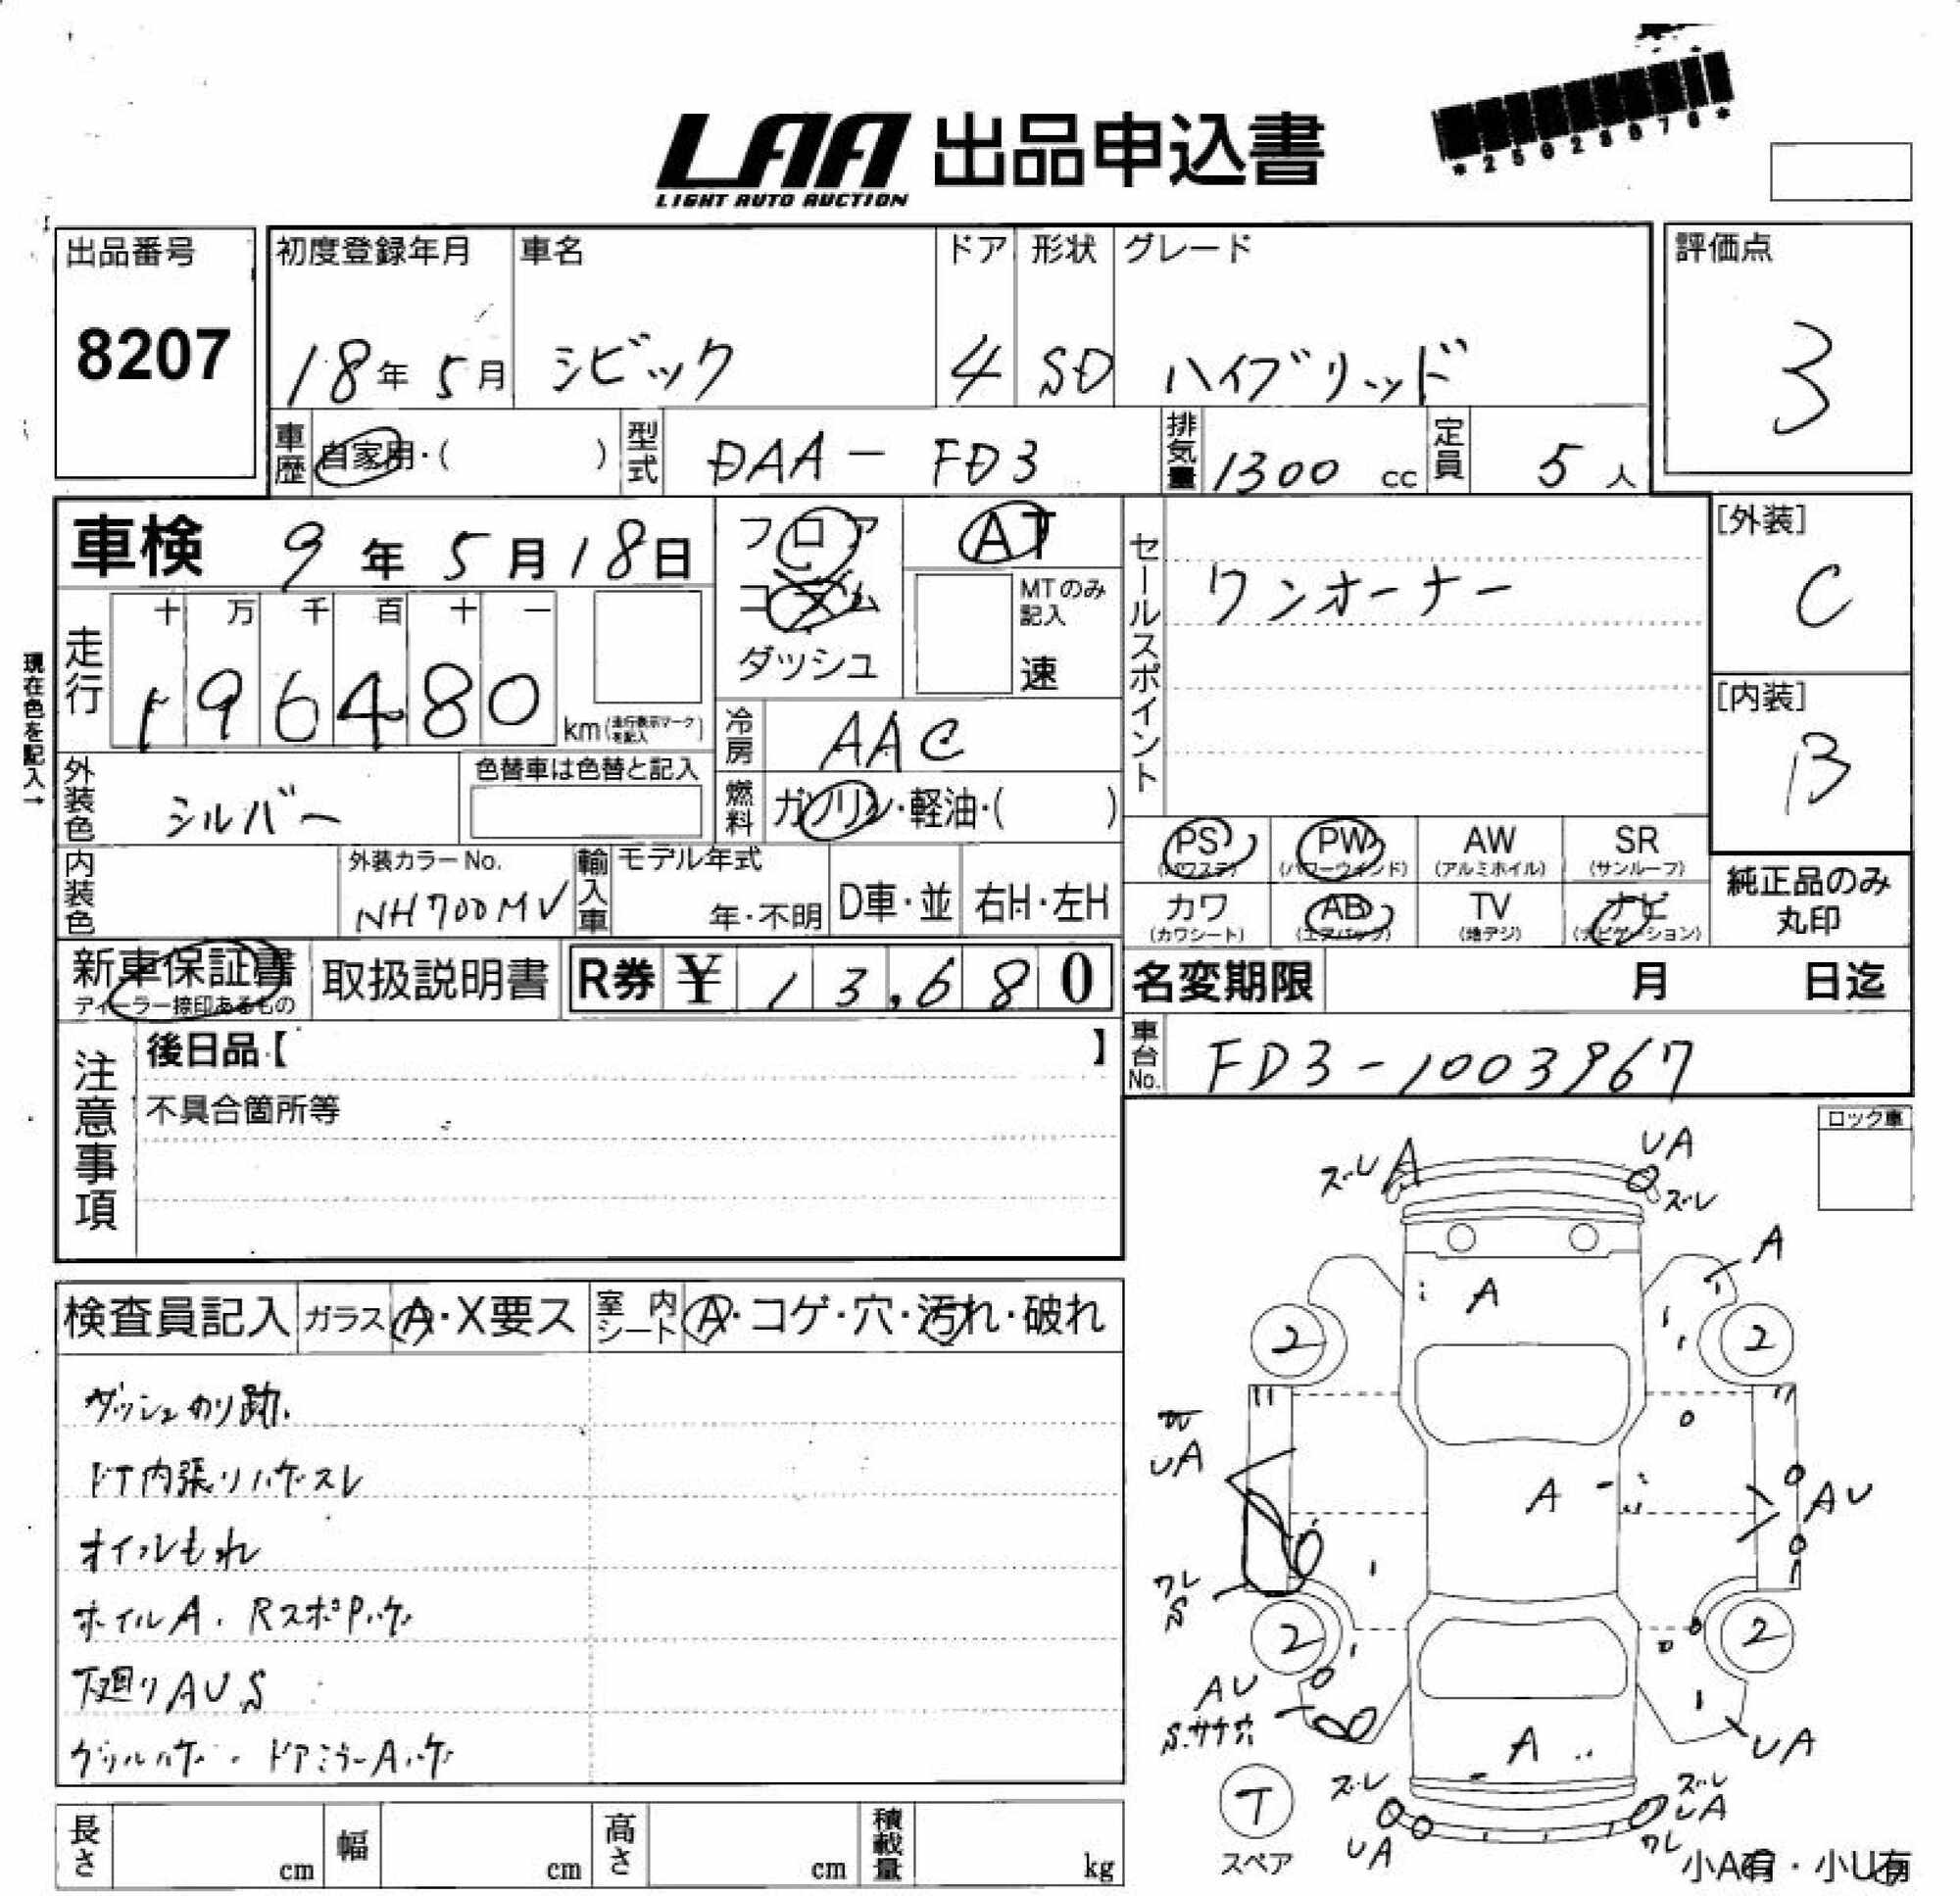 LAA 出品申込書
LIGHT AUTO AUCTION
*25028076*
出品番号
8207
初度登録年月
18年5月
車名
シビック
ドア
4
形状
SD
グレード
ハイブリッド
評価点
3
車歴
自家用・( )
型式
DAA-FD3
排気量
1300 cc
定員
5人
車検 9年5月18日
フロア
コラム
ダッシュ
AT
MTのみ記入
速
セールスポイント
ワンオーナー
[外装]
C
[内装]
B
現在色を記入→
走行
十 万 千 百 十 一
196480
km(走行表示マークを記入)
冷房
AAC
燃料
ガソリン・軽油・( )
外装色
シルバー
色替車は色替と記入
内装色
外装カラーNo.
NH700MV
輸入車
モデル年式
年・不明
D車・並
右H・左H
PS
(パワステ)
PW
(パワーウインド)
AW
(アルミホイル)
SR
(サンルーフ)
カワ
(カワシート)
AB
(エアバック)
TV
(地デジ)
ナビ
(ナビゲーション)
純正品のみ
丸印
新車保証書
ディーラー捺印あるもの
取扱説明書
R券 ¥ 13,680
名変期限 月 日迄
車台No.
FD3-1003967
注意事項
後日品【 】
不具合箇所等
ロック車
検査員記入
ガラス
A・X要ス
室内シート
A・コゲ・穴・汚れ・破れ
ダッシュのり跡.
ドア内張りハゲスレ
オイルもれ
ホイルA. RスポPハゲ
下廻りAUS
グリルハゲ. ドアミラーAハゲ
ズレ A
UA
ズレ
A
A
2
2
UA
A
AU
ワレ
S
2
2
AU
S.サケ穴
A
UA
ズレ
UA
ズレ
UA
ワレ
T
スペア
小A有・小U有
長さ cm
幅 cm
高さ cm
積載量 kg